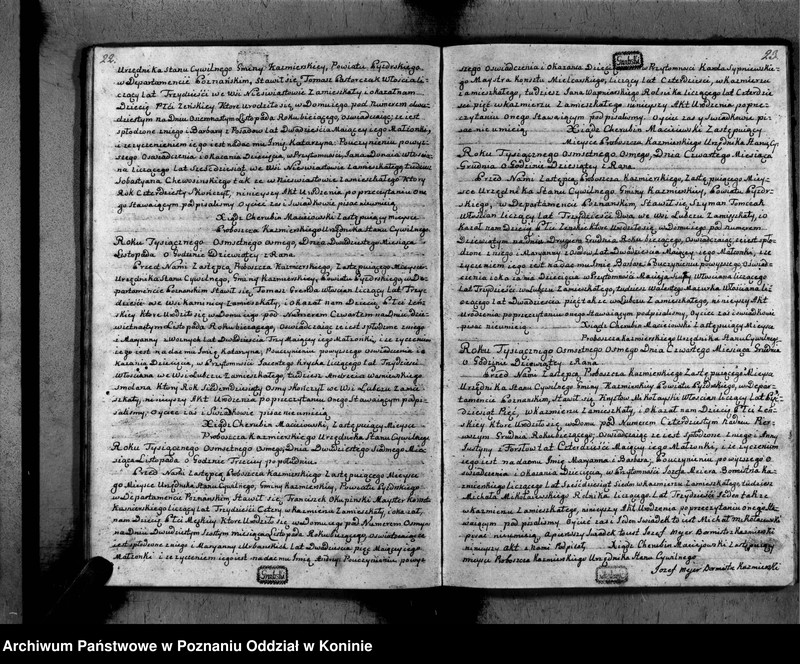 22.
Urzędnika Stanu Cywilnego Gminy Kazmierskiey, Powiatu Pyzdrskiego
w Departamencie Poznańskim, Stawił się, Tomasz Pastorczak Włościa
czący lat Trzydzieści we Wsi Nieświastowie Zamieszkały i okazał nam
Dziecię Płci Żeńskiey Które urodziło się w Domu iego pod Numerem
na Dniu Osiemnastym Listopada Roku bieżącego, oświadczaiąc że iest
spłodzone z niego i Barbary z Lat Dwadzieścia Maiącey iego Małżonki,
i że życzeniem iego iest nadać mu Imię Katarzyna. Po uczynieniu powyż
szego Oświadczenia i okazania Dziecięcia, w Przytomności Jana
na liczącego lat Sześćdziesiąt we Wsi Nieświastowie Zamieszkałego tudzież
Sebastyana w Nieświastowie Zamieszkałego Który
Rok Czterdziesty Skończył, ninieyszy Akt Urodzenia po przeczytaniu one
go Stawaiącym podpisaliśmy Oyciec zaś i Swiadkowie pisać nieumieią
Xiądz Cherubin Maciejowski Zastępuiący mieysce
Proboszcza Kazmierskiego Urzędnika Stanu Cywilnego
Roku Tysiącznego Osmsetnego Osmego, Dnia Dwudziestego Miesiąca
Listopada o Godzinie Dziewiątey z Rana
Przed Nami Zastępcą Proboszcza Kazmierskiego, Zastępuiącego Mieysce
Urzędnika Stanu Cywilnego, Gminy Kazmierskiey, Powiatu Pyzdrskiego, w De
partamencie Poznańskim Stawił się, Tomasz Włościan liczący lat Trzy
dzieści we Wsi Kaminicy Zamieszkały, i okazał nam Dziecię, Płci Żeń
skiey Które Urodziło się w Domu iego pod Numerem Czwartem na Dniu
Listopada Roku bieżącego, Oświadczaiąc że iest spłodzone z niego
i Maryanny z Lat Dwadzieścia Trzy Maiącey iego Małżonki, i że życzeniem
iego iest nadać mu Imię Katarzyna, Po uczynieniu powyższego oświadczenia i o
kazania Dziecięcia, w Przytomności liczącego lat Trzydzieści
Włościana we Wsi Lubczu Zamieszkałego, tudzież Andrzeia
Który Rok Siedmdziesiąty Osmy Skończył we Wsi Lubczu Zamie
szkały, ninieyszy Akt Urodzenia po przeczytaniu onego Stawaiącym podpi
saliśmy; Oyciec zaś i Świadkowie pisać nieumieią
Xiądz Cherubin Maciejowski, Zastępuiący Mieysce
Proboszcza Kazmierskiego Urzędnika Stanu Cywilnego
Roku Tysiącznego Osmsetnego Osmego, Dnia Dwudziestego Siódmego Mie
siąca Listopada o Godzinie Trzeciey po południu
Przed Nami Zastępcą Proboszcza Kazmierskiego Zastępuiącego Mieysce
Urzędnika Stanu Cywilnego, Gminy Kazmierskiey, Powiatu Pyzdrskiego
w Departamencie Poznańskim Stawił się, Franciszek Okupinski Mayster
Kusnierskiego liczący lat Trzydzieści Cztery w Kazmierzu Zamieszkały, i okazał
nam Dziecię Płci Męskiey Które Urodziło się w Domu iego pod Numerem Osmym
na Dniu Dwudziestym Szóstym miesiąca Listopada Roku bieżącego, Oświadczaiąc że
iest spłodzone z niego i Maryanny z Urbańskich Lat Dwadzieścia pięć Maiącey iego
Małżonki i że życzeniem iego iest nadać mu Imię Andrzey Po uczynieniu powyż
23.
szego Oświadczenia i Okazania Dziecięcia w Przytomności Karola
go Maystra Kunsztu Mielcarskiego, liczącego lat Czterdzieści, w Kazmierzu
Zamieszkałego, tudzież Jana Rolnika liczącego lat Czterdzie
ści pięć w Kazmierzu Zamieszkałego ninieyszy Akt Urodzenia po prze
czytaniu onego Stawaiącym podpisaliśmy. Oyciec zaś y Świadkowie pi
sać nieumieią Xiądz Cherubin Maciejowski Zastępuiący
Mieysce Proboszcza Kazmierskiego Urzędnika Stanu Cy
Roku Tysiącznego Osmsetnego Osmego, Dnia Czwartego Miesiąca
Grudnia o Godzinie Dziewiątey z Rana
Przed Nami Zastępcą Proboszcza Kazmierskiego, Zastępuiącego Miey
sce Urzędnika Stanu Cywilnego Gminy Kazmierskiey, Powiatu Pyzdr
skiego, w Departamencie Poznańskim, Stawił się Szyman Tomczak
Włościan liczący lat Trzydzieści Dwa we Wsi Lubczu Zamieszkały, i o
kazał nam Dziecię Płci Żeńskiey Które Urodziło się w Domu iego pod Numerem
Dziewiątym na Dniu Drugiem Grudnia Roku bieżącego, Oświadczaiąc że iest spło
dzone z niego i Maryanny z Lat Dwadzieścia Maiącey iego Małżonki, i że
życzeniem iego iest nadać mu Imię Barbara Po uczynieniu powyższego Oświad
czenia i okazania Dziecięcia w Przytomności Macieja Włościana liczącego
lat Trzydzieści w Lubczu Zamieszkałego, tudzież Walentego Mazurka Włościana li
czącego lat Dwadzieścia pięć także w Lubczu Zamieszkałego, ninieyszy Akt
Urodzenia po przeczytaniu onego Stawaiącym podpisaliśmy, Oyciec zaś i świadkowie
pisać nieumieią Xiądz Cherubin Maciejowski Zastępuiący Mieysce
Proboszcza Kazmierskiego Urzędnika Stanu Cywilnego
Roku Tysiącznego Osmsetnego Osmego Dnia Czwartego Miesiąca Grudnia
o Godzinie Dziewiątey z Rana
Przed Nami Zastępcą Proboszcza Kazmierskiego Zastępuiącego Mieysce
Urzędnika Stanu Cywilnego Gminy Kazmierskiey Powiatu Pyzdrskiego, w Depar
tamencie Poznańskim, Stawił się Krysztof Włościan liczący lat Pięć
dziesiąt Pięć, w Kazmierzu Zamieszkały, i okazał nam Dziecię Płci Żeń
skiey Które Urodziło się w Domu pod Numerem Czterdziestym na Dniu Pier
wszym Grudnia Roku bieżącego; oświadczaiąc że iest spłodzone z niego i Anny
Justyny z Lat Czterdzieści Maiącey iego Małżonki, i że życzeniem
iego iest nadać mu Imię Maryanna i Barbara, Po uczynieniu powyższego o
świadczenia i okazania Dziecięcia, w Przytomności Jozefa Meiera Bormistrza Ka
zmierskiego liczącego Lat Sześćdziesiąt Siedm w Kazmierzu Zamieszkałego, tudzież
Michała Mikołaiewskiego Rolnika liczącego Lat Trzydzieści Jeden także
w Kazmierzu Zamieszkałego, ninieyszy Akt Urodzenia po przeczytaniu onego Sta
waiącym podpisaliśmy. Oyciec zaś i Jeden Świadek to iest Michał Mikołaiewski
pisać nieumieią, a pierwszy Świadek to iest Jozef Meyer Bormistrz Kazmierski
ninieyszy Akt z Nami Podpisał Xiądz Cherubin Maciejowski Zastępuiący
mieysce Proboszcza Kazmierskiego Urzędnika Stanu Cywilnego
Jozef Meyer Bormistrz Kazmierski
Archiwum Państwowe w Poznaniu Oddział w Koninie